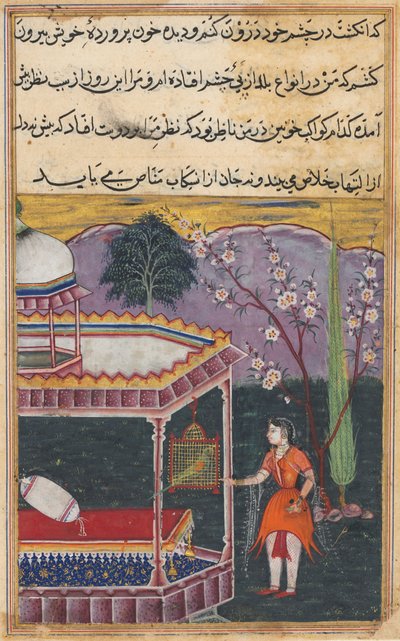 که انگشت در چشم خود درون کنم و دیده خون پروردهٔ خویش بیرون
کنم که من در انواع بلا از پی چشم افتاده ام و مرا این روز از سبب نظر پیش
آمده کدام کواکب نحوس در من ناظر بود که نظر من برو افتاد که پیش نه دل
از التهاب خلاص می بیند و نه جان از انسکاب مناص می یابد